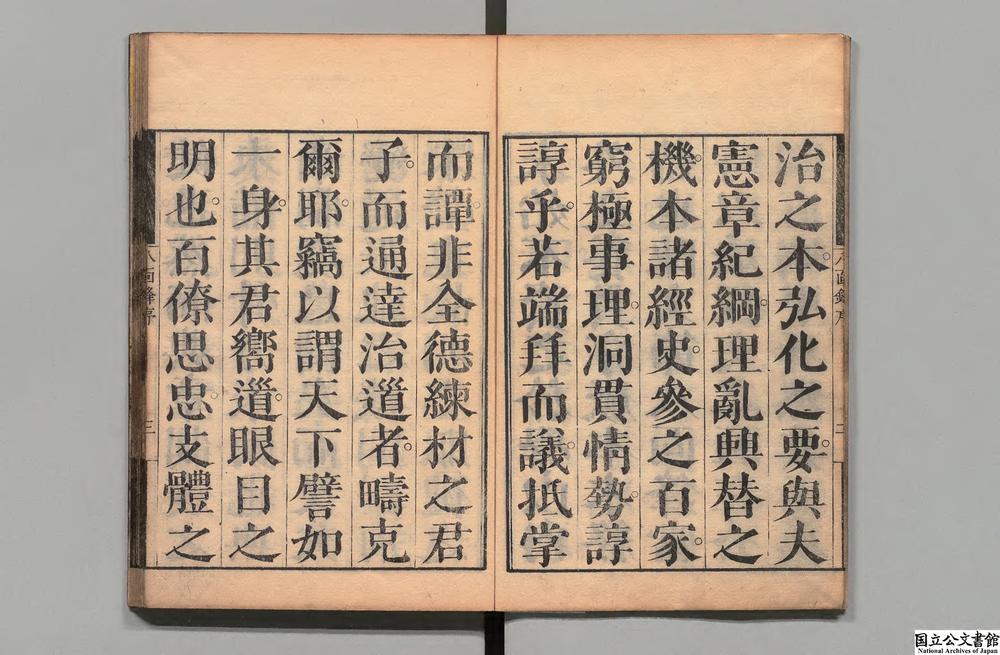 治之本。弘化之要。與夫
憲章紀綱。理亂興替之
機。本諸經史。參之百家。
窮極事理。洞貫情勢。諄
諄乎。若端拜而議抵掌
而譚。非全德練材之君
子。而通達治道者。疇克
爾耶。竊以謂天下譬如
一身。其君嚮道。眼目之
明也。百僚思忠。支體之
序
三
国立公文書館
National Archives of Japan